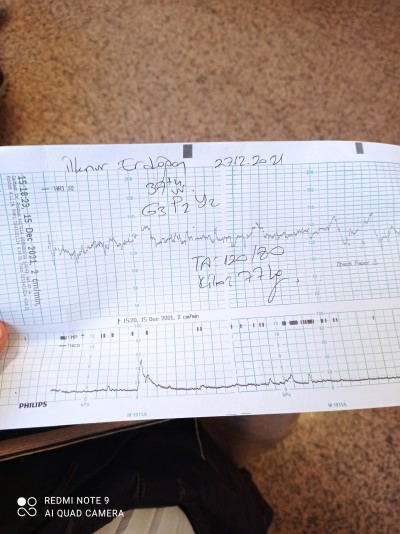 İlknur Erdoğan 27.12.2021
39+4 w.
G3 P2 Y2
TA: 120/80
Kilo: 77 kg.
15:18:23, 15 Dec 2021, 2 cm/min,
Check Paper
15:20, 15 Dec 2021, 2 cm/min
FMP
Toco
kPa
kPa
PHILIPS
M 1911A
M 1911A
REDMI NOTE 9
AI QUAD CAMERA